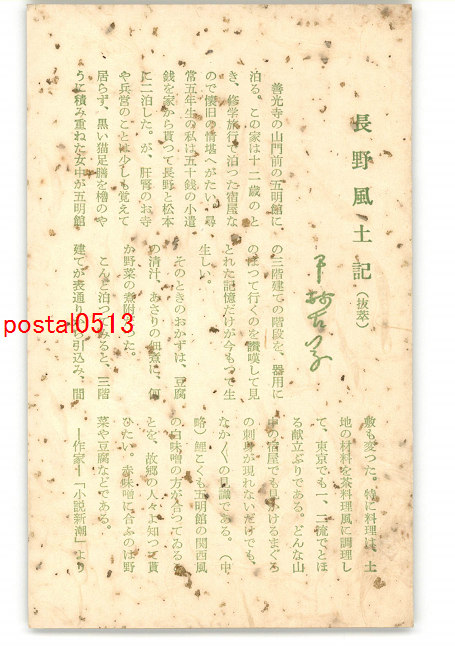 長野風土記（抜萃）
善光寺の山門前の五明館に
泊る。この家は十二歳のと
き、修学旅行で泊つた宿屋な
ので懐旧の情堪へがたい。尋
常五年生の私は五十銭の小遣
銭を家から貰つて長野と松本
に二泊した。が、肝腎のお寺
や兵営のことは少しも覚えて
居らず、黒い猫足膳を櫓のや
うに積み重ねた女中が五明館
の三階建ての階段を、器用に
のぼつて行くのを讃嘆して見
とれた記憶だけが今もつて生
生しい。
そのときのおかずは、豆腐
の清汁、あさりの佃煮に、何
か野菜の煮附だつた。
こんど泊つてみると、三階
建てが表通りから引込み、間
敷も変つた。特に料理は、土
地の材料を茶料理風に調理し
て、東京でも一、二流でとほ
る献立ぶりである。どんな山
中の宿屋でも見かけるまぐろ
の刺身が現れないだけでも、
なか〳〵の見識である。（中
略）鯉こくも五明館の関西風
の白味噌の方が合つてゐるこ
とを、故郷の人々よ知つて貰
ひたい。赤味噌に合ふのは野
菜や豆腐などである。
―作家―「小説新潮」より
postal0513